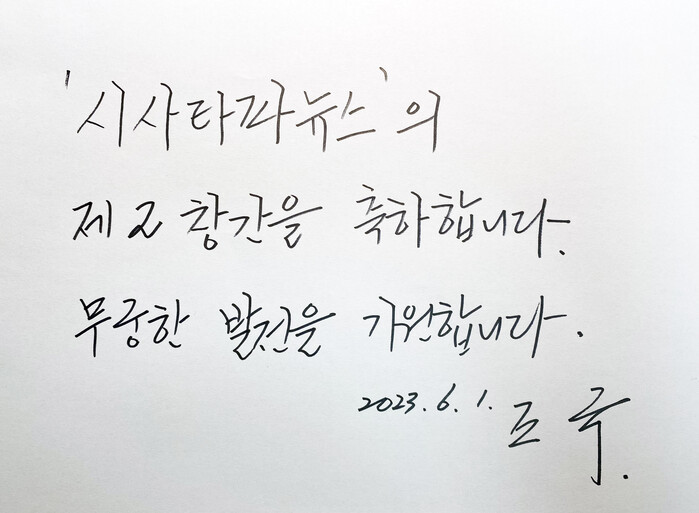 '시사타파뉴스'의
제2창간을 축하합니다.
무궁한 발전을 기원합니다.
2023. 6. 1. 조 국.